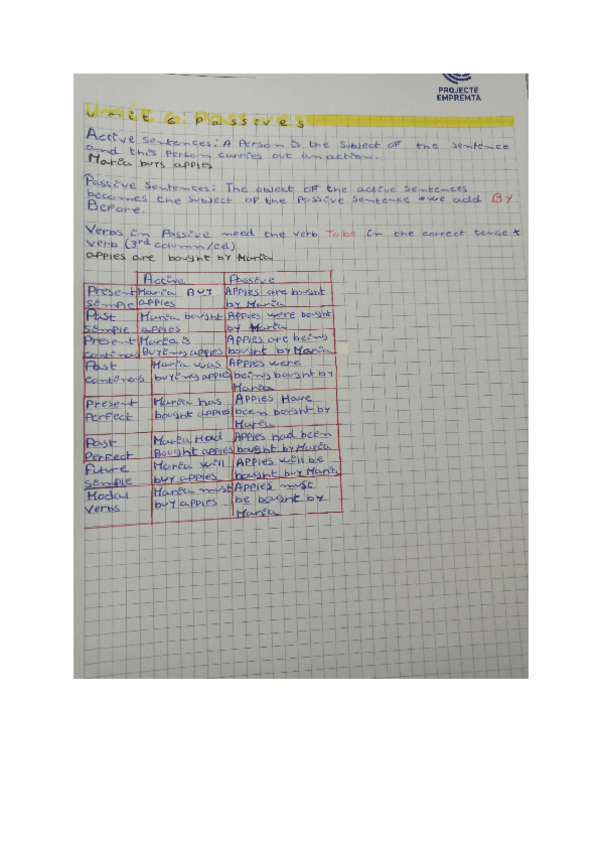 PROJECTE
EMPREMTA
Unit 6: Passives
Active sentences: A person is the subject of the sentence
and this person carries out an action.
Maria buys apples
Passive sentences: The object of the active sentences
becomes the subject of the passive sentence *we add BY
Before.
Verbs in Passive need the verb To be in the correct tense +
verb (3rd column/ed)
apples are bought by Maria
Active Passive
Present Maria Buy Apples are bought
semple apples by Maria
Past Maria bought Apples were bought
semple apples by Maria
Present Maria is Apples are being
continos Buying apples bought by Maria
Past Maria was Apples were
continos buying apples being bought by
Maria
Present Maria has Apples Have
Perfect bought apples been bought by
Maria
Past Maria Had Apples had been
Perfect Bought apples bought by Maria
Future Maria will Apples will be
semple buy apples bought buy Maria
Modal Maria must Apples must
verbs buy apples be bought by
Maria